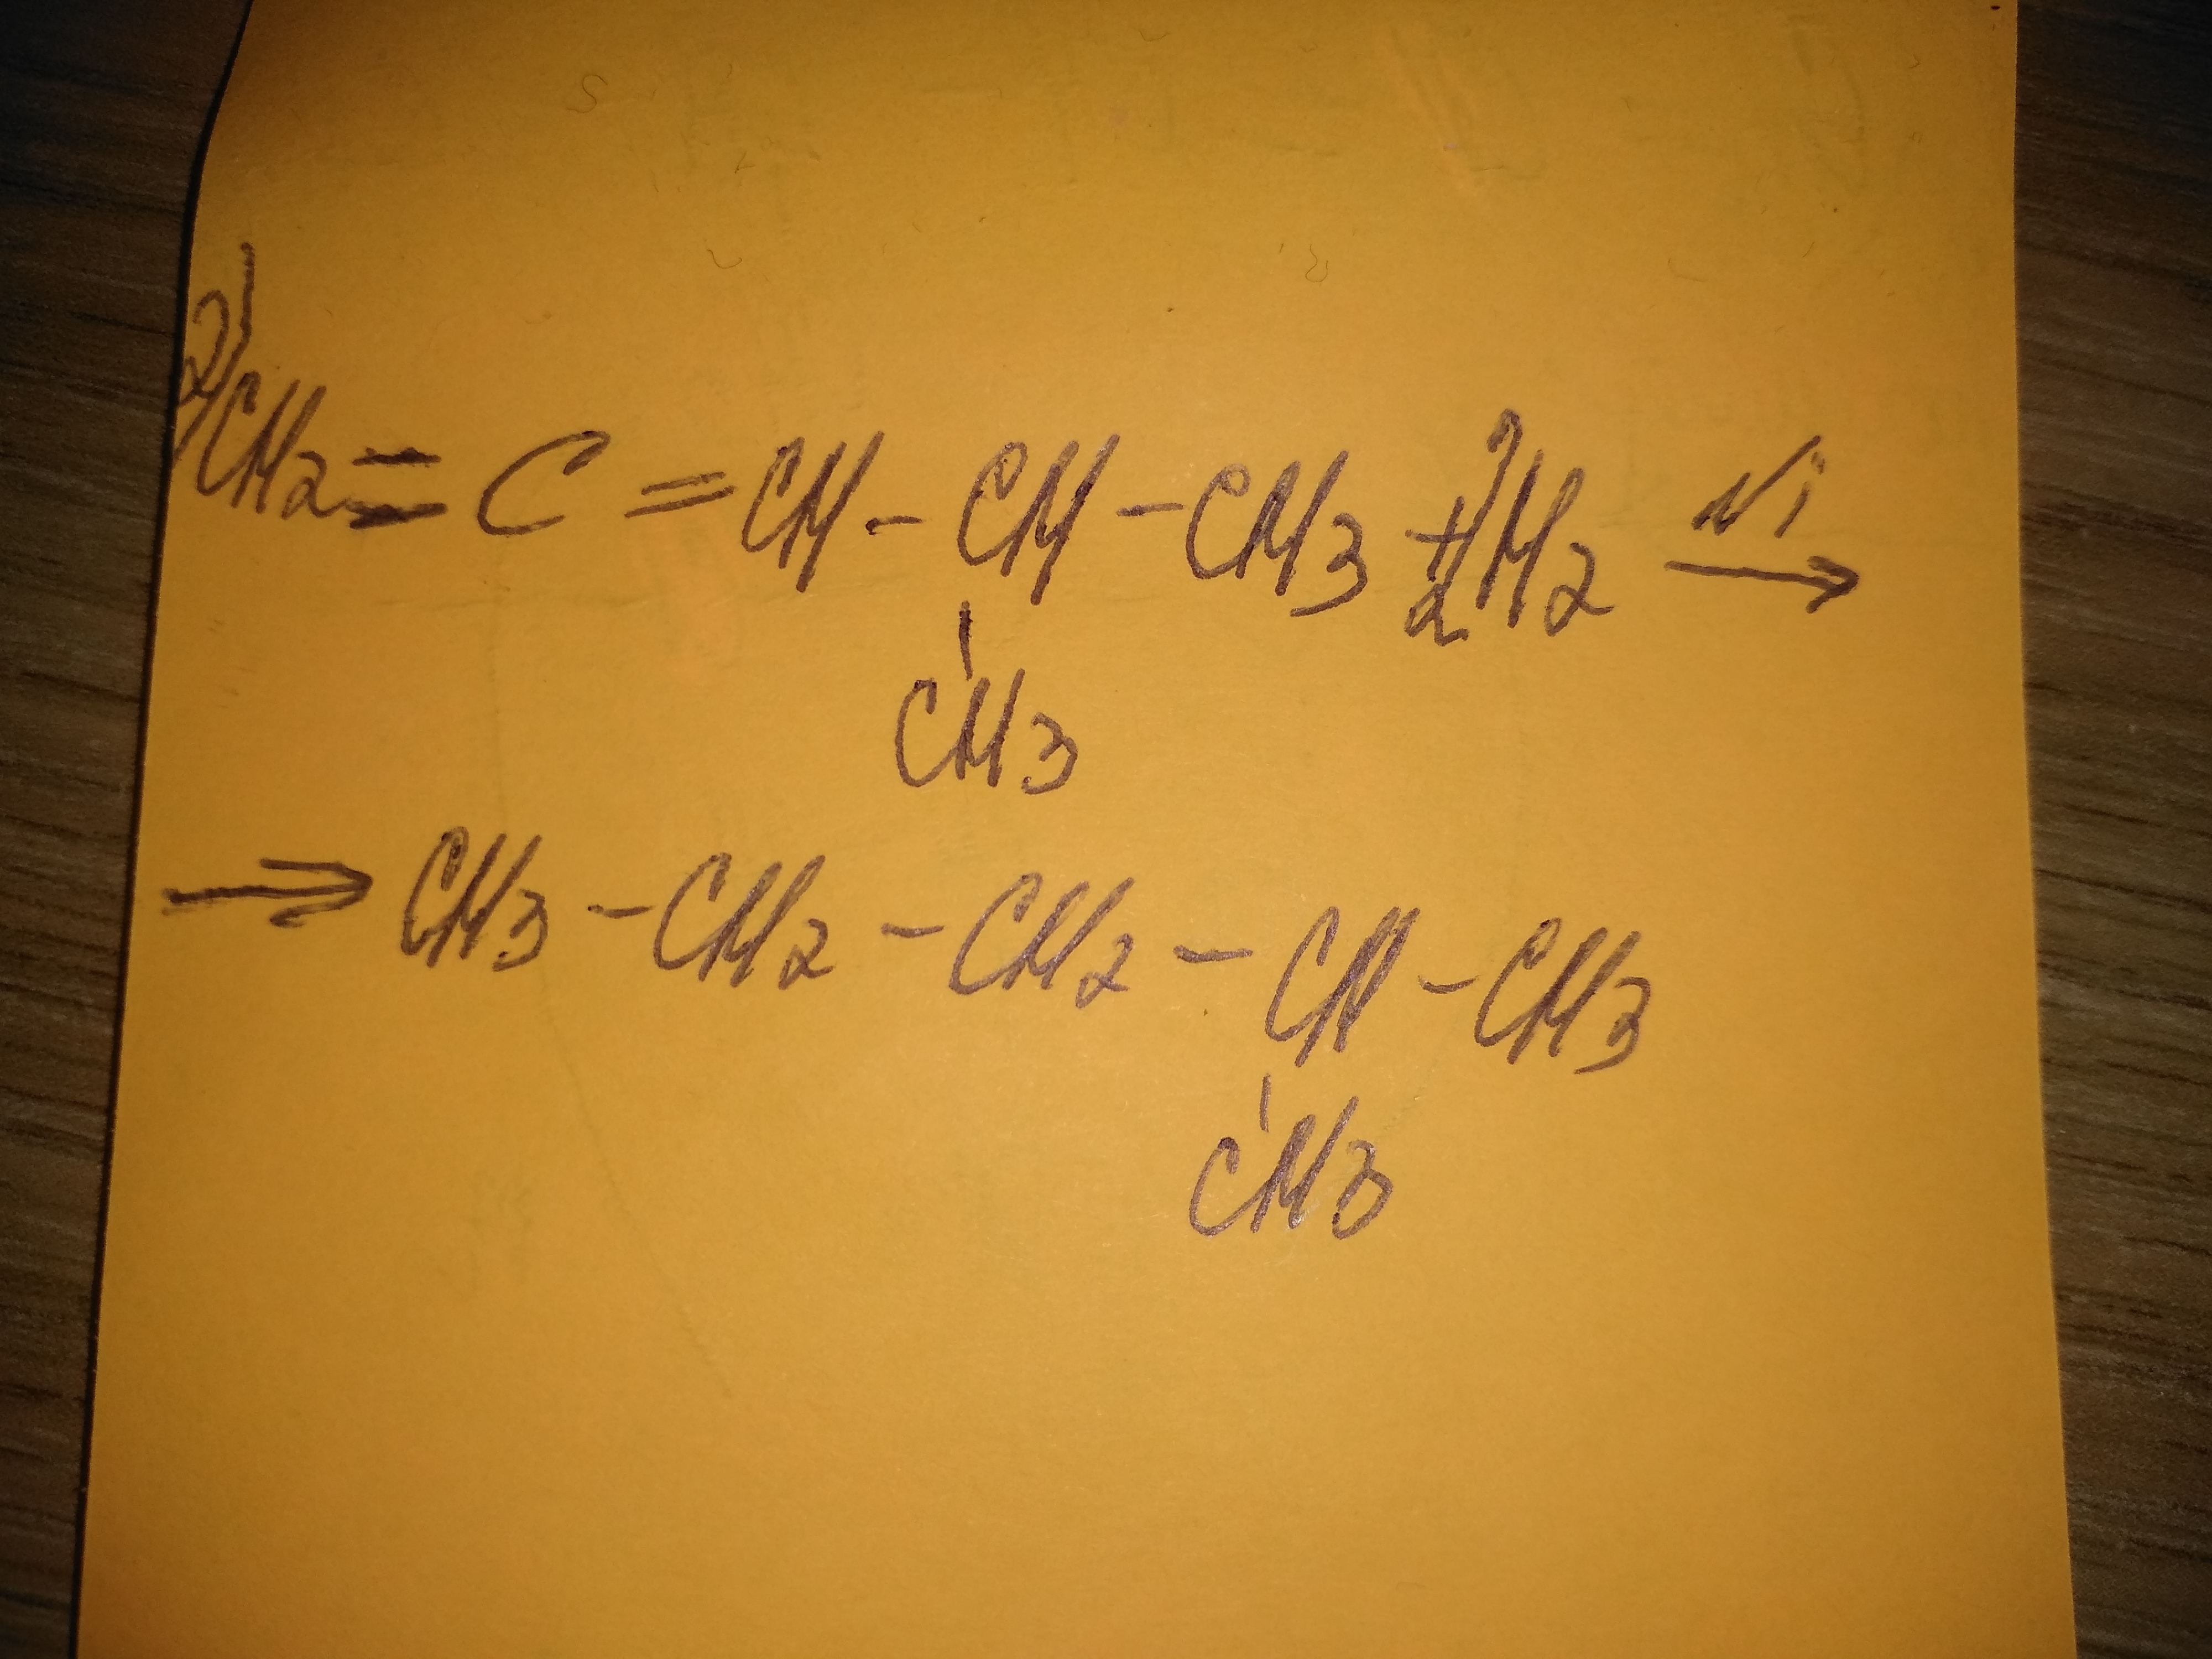 2) CH2 = C = CH - CH - CH3 + 2H2 Ni →
CH3
→ CH3 - CH2 - CH2 - CH - CH3
CH3